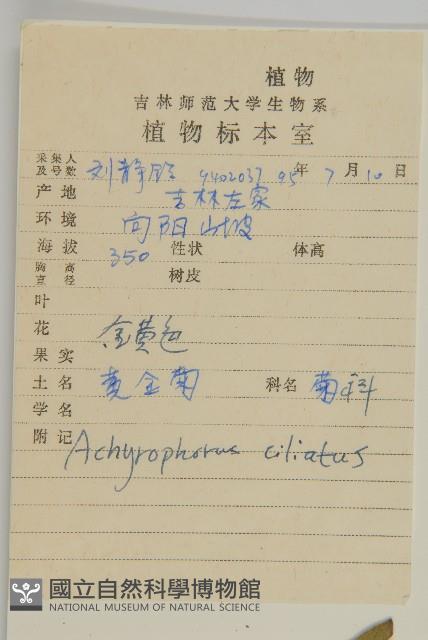 植物
吉林师范大学生物系
植物标本室
采集人及号数 刘静玲 9402037 95年 7月 10日
产地 吉林左家
环境 向阳山坡
海拔 350 性状 体高
胸高直径 树皮
叶
花 金黄色
果实
土名 黄金菊 科名 菊科
学名
附记 Achyrophorus ciliatus
國立自然科學博物館
NATIONAL MUSEUM OF NATURAL SCIENCE